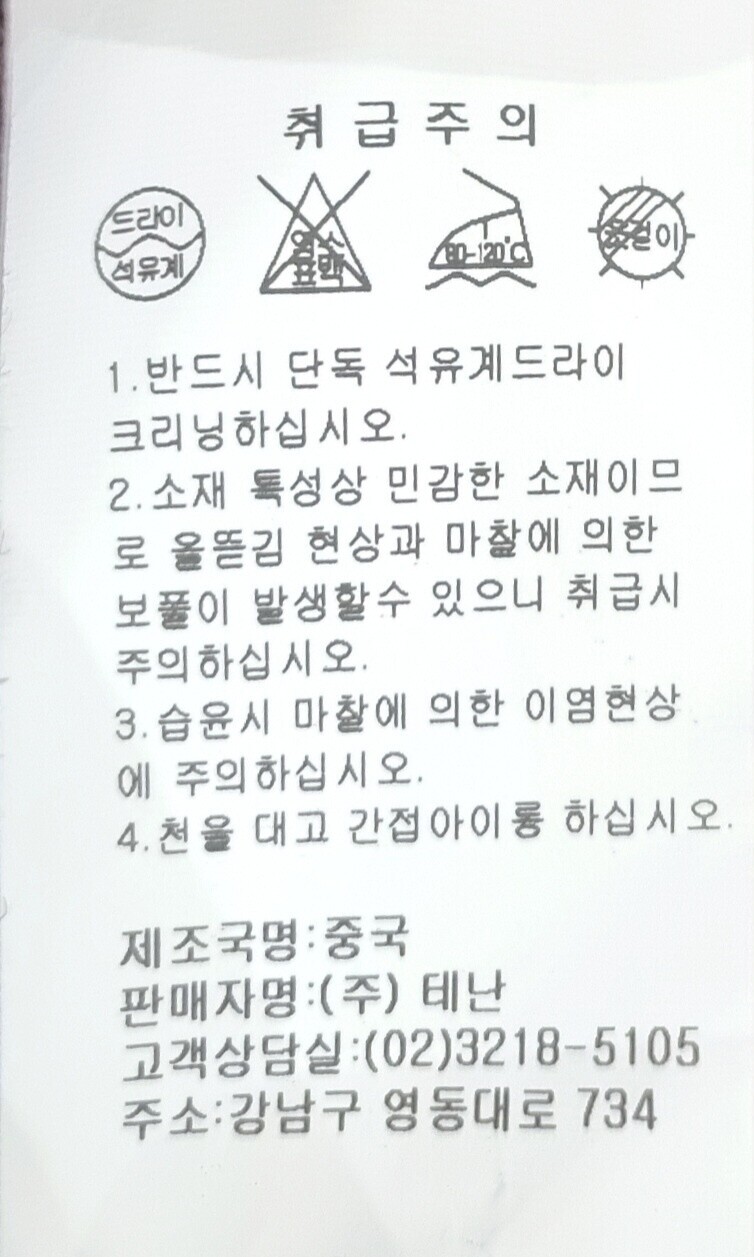 취급주의
드라이
석유계
염소
표백
80-120℃
옷걸이
1.반드시 단독 석유계드라이
크리닝하십시오.
2.소재 특성상 민감한 소재이므
로 올뜯김 현상과 마찰에 의한
보풀이 발생할수 있으니 취급시
주의하십시오.
3.습윤시 마찰에 의한 이염현상
에 주의하십시오.
4.천을 대고 간접아이롱 하십시오.
제조국명:중국
판매자명:(주) 테난
고객상담실:(02)3218-5105
주소:강남구 영동대로 734